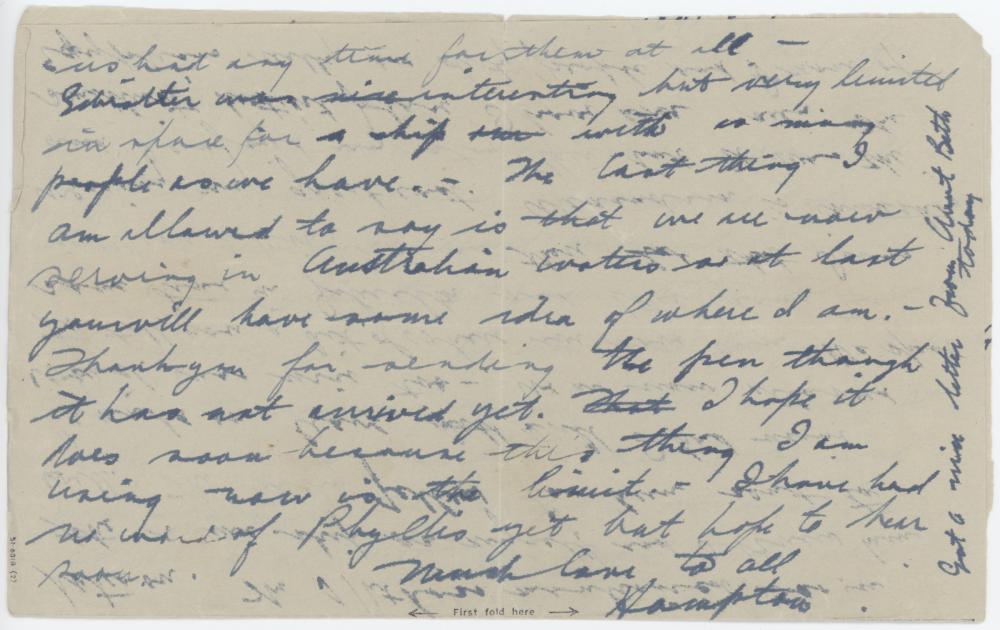 us hat any time for them at all —
Gibralter was nice interesting but very limited
in space for a ship our with so many
people as we have. — The last thing I
am allowed to say is that we are now
serving in Australian waters so at last
you will have some idea of where I am. —
Thank you for sending the pen though
it has not arrived yet. That I hope it
does soon because this thing I am
using now is the limit — I have had
no word of Phyllis yet but hope to hear
soon. Much love to all
Hampton.
Got a nice letter from Aunt Beth
today
← First fold here →
51-6018 (2)